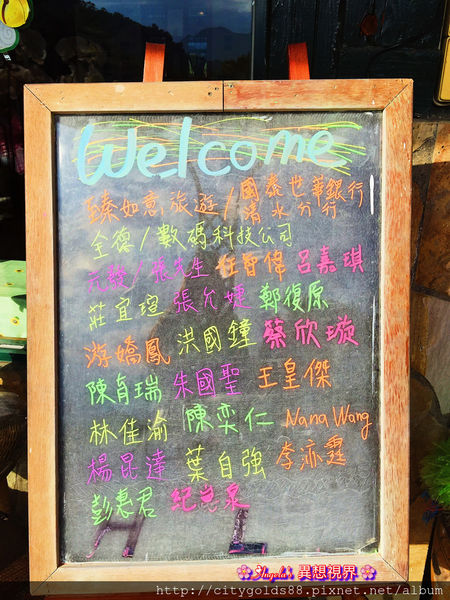 Welcome
臻如意旅遊/國泰世華銀行
清水分行
全德/數碼科技公司
張先生 任智偉 呂嘉琪
莊宜瑄 張允婕 鄭復原
游嬌鳳 洪國鐘 蔡欣璇
陳育瑞 朱國聖 王皇傑
林佳渝 陳奕仁 Nana Wang
楊昆達 葉自強 李沛霆
彭惠君
異想視界
http://citygolds88.pixnet.net/album